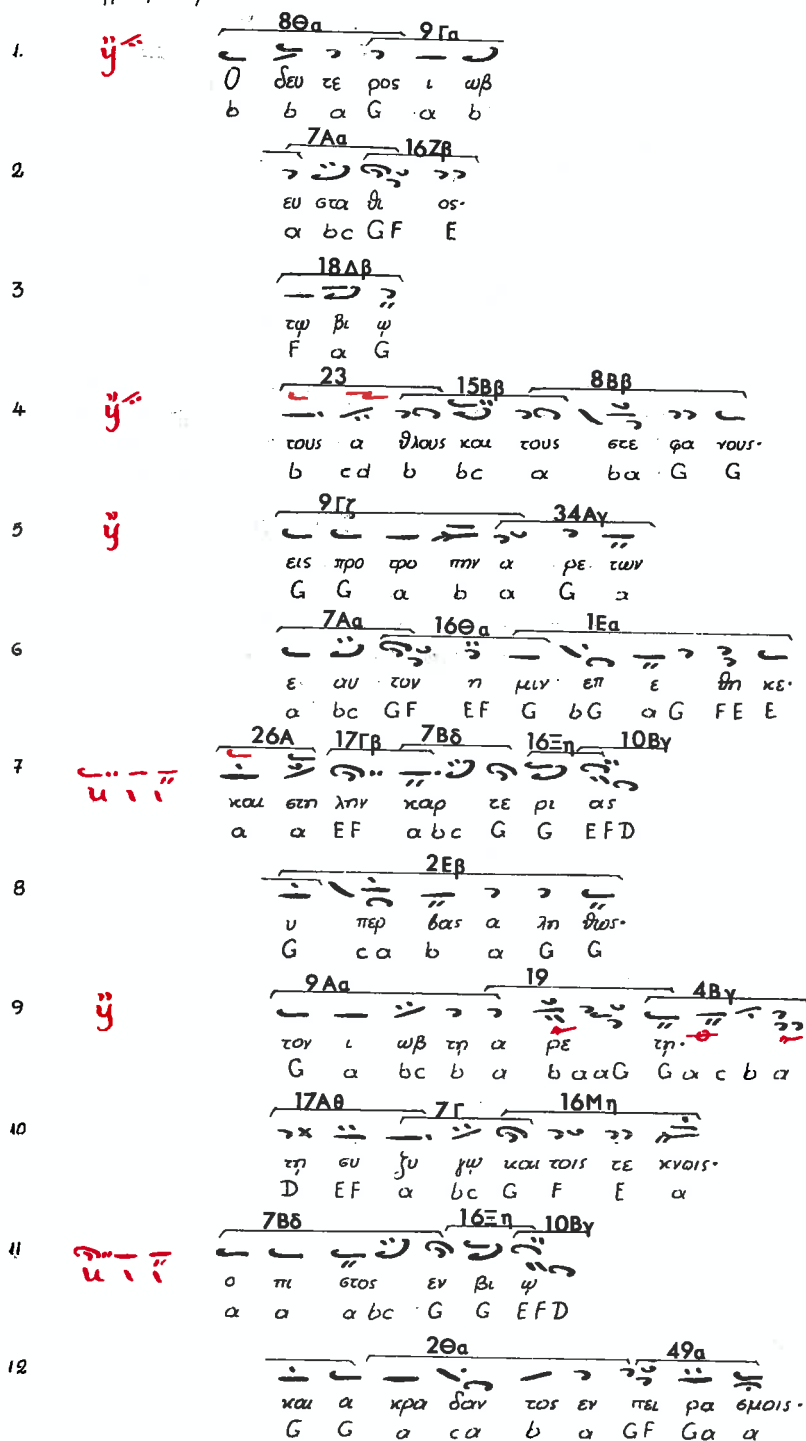 8Θα 9Γα
1.
Ο δευ τε ρος ι ωβ
b b a G a b
7Αα 16Ζβ
2
ευ στα θι ος·
a bc GF E
18Δβ
3
τῳ βι ῳ
F a G
23 15Ββ 8Ββ
4
τους α θλους και τους στε φα νους·
b cd b bc a ba G G
9Γζ 34Αγ
5
εις προ τρο πην α ρε των
G G a b a G a
7Αα 16Θα 1Εα
6
ε αυ τον η μιν επ ε θη κε·
a bc GF EF G bG aG FE E
26Α 17Γβ 7Βδ 16Ξη 10Βγ
7
και στη λην καρ τε ρι ας
a a EF abc G G EFD
2Εβ
8
υ περ βας α λη θως·
G ca b a G G
9Αα 19 4Βγ
9
τον ι ωβ τῃ α ρε τῃ·
G a bc b a baaG Gacba
17Αθ 7Γ 16Μη
10
τῃ συ ζυ γῳ και τοις τε κνοις·
D EF a bc G F E a
7Βδ 16Ξη 10Βγ
11
ο πι στος εν βι ῳ
a a abc G G EFD
2Θα 49α
12
και α κρα δαν τος εν πει ρα σμοις·
G G a ca b a GF Ga a